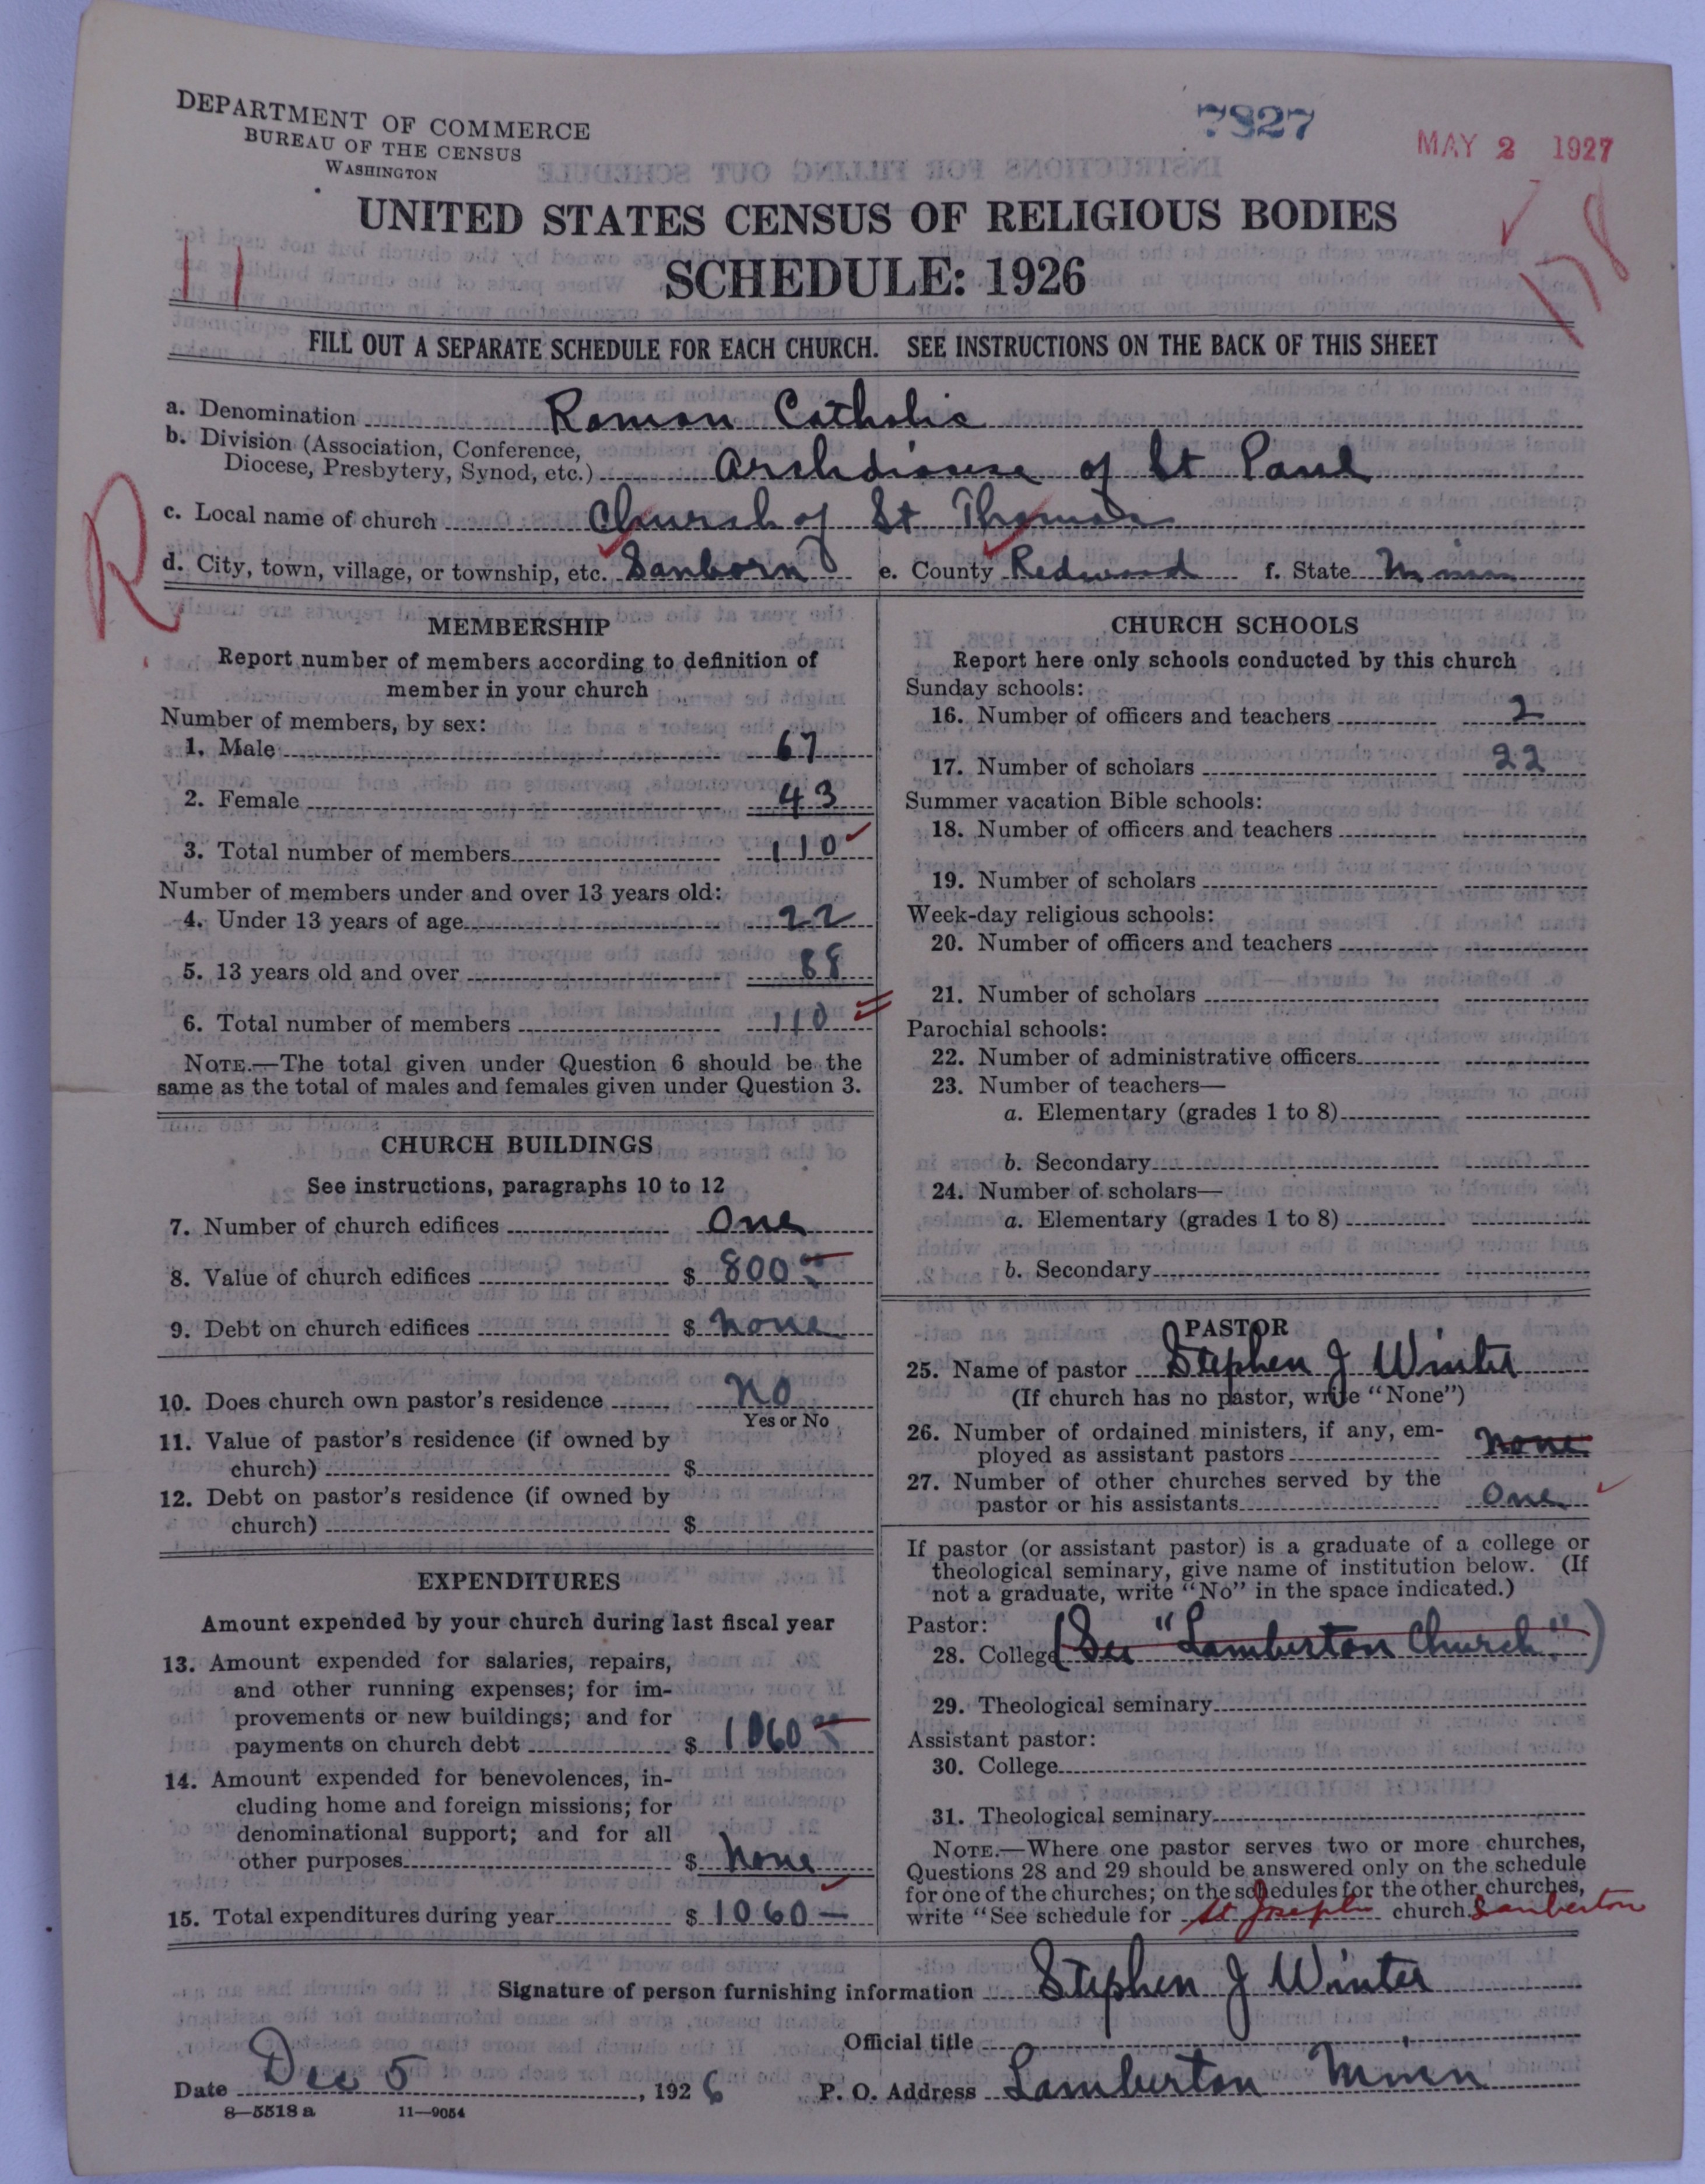 DEPARTMENT OF COMMERCE
BUREAU OF THE CENSUS
WASHINGTON
7827
MAY 2 1927
UNITED STATES CENSUS OF RELIGIOUS BODIES
SCHEDULE: 1926
11
178
FILL OUT A SEPARATE SCHEDULE FOR EACH CHURCH. SEE INSTRUCTIONS ON THE BACK OF THIS SHEET
a. Denomination Roman Catholic
b. Division (Association, Conference,
Diocese, Presbytery, Synod, etc.) Archdiocese of St Paul
R
c. Local name of church Church of St Thomas
d. City, town, village, or township, etc. Sanborn e. County Redwood f. State Minn
MEMBERSHIP
Report number of members according to definition of
member in your church
Number of members, by sex:
1. Male 67
2. Female 43
3. Total number of members 110
Number of members under and over 13 years old:
4. Under 13 years of age 22
5. 13 years old and over 88
6. Total number of members 110
NOTE.—The total given under Question 6 should be the
same as the total of males and females given under Question 3.
CHURCH BUILDINGS
See instructions, paragraphs 10 to 12
7. Number of church edifices One
8. Value of church edifices $ 800
9. Debt on church edifices $ none
10. Does church own pastor's residence no
Yes or No
11. Value of pastor's residence (if owned by
church) $
12. Debt on pastor's residence (if owned by
church) $
EXPENDITURES
Amount expended by your church during last fiscal year
13. Amount expended for salaries, repairs,
and other running expenses; for im-
provements or new buildings; and for
payments on church debt $ 1060
14. Amount expended for benevolences, in-
cluding home and foreign missions; for
denominational support; and for all
other purposes $ none
15. Total expenditures during year $ 1060—
CHURCH SCHOOLS
Report here only schools conducted by this church
Sunday schools:
16. Number of officers and teachers 2
17. Number of scholars 22
Summer vacation Bible schools:
18. Number of officers and teachers
19. Number of scholars
Week-day religious schools:
20. Number of officers and teachers
21. Number of scholars
Parochial schools:
22. Number of administrative officers
23. Number of teachers—
a. Elementary (grades 1 to 8)
b. Secondary
24. Number of scholars—
a. Elementary (grades 1 to 8)
b. Secondary
PASTOR
25. Name of pastor Stephen J Winter
(If church has no pastor, write "None")
26. Number of ordained ministers, if any, em-
ployed as assistant pastors none
27. Number of other churches served by the
pastor or his assistants One
If pastor (or assistant pastor) is a graduate of a college or
theological seminary, give name of institution below. (If
not a graduate, write "No" in the space indicated.)
Pastor:
28. College (See "Lamberton Church")
29. Theological seminary
Assistant pastor:
30. College
31. Theological seminary
NOTE.—Where one pastor serves two or more churches,
Questions 28 and 29 should be answered only on the schedule
for one of the churches; on the schedules for the other churches,
write "See schedule for St Joseph church Lamberton
Signature of person furnishing information Stephen J Winter
Official title
Date Dec 5, 1926 P. O. Address Lamberton Minn
8—5518a 11—9054